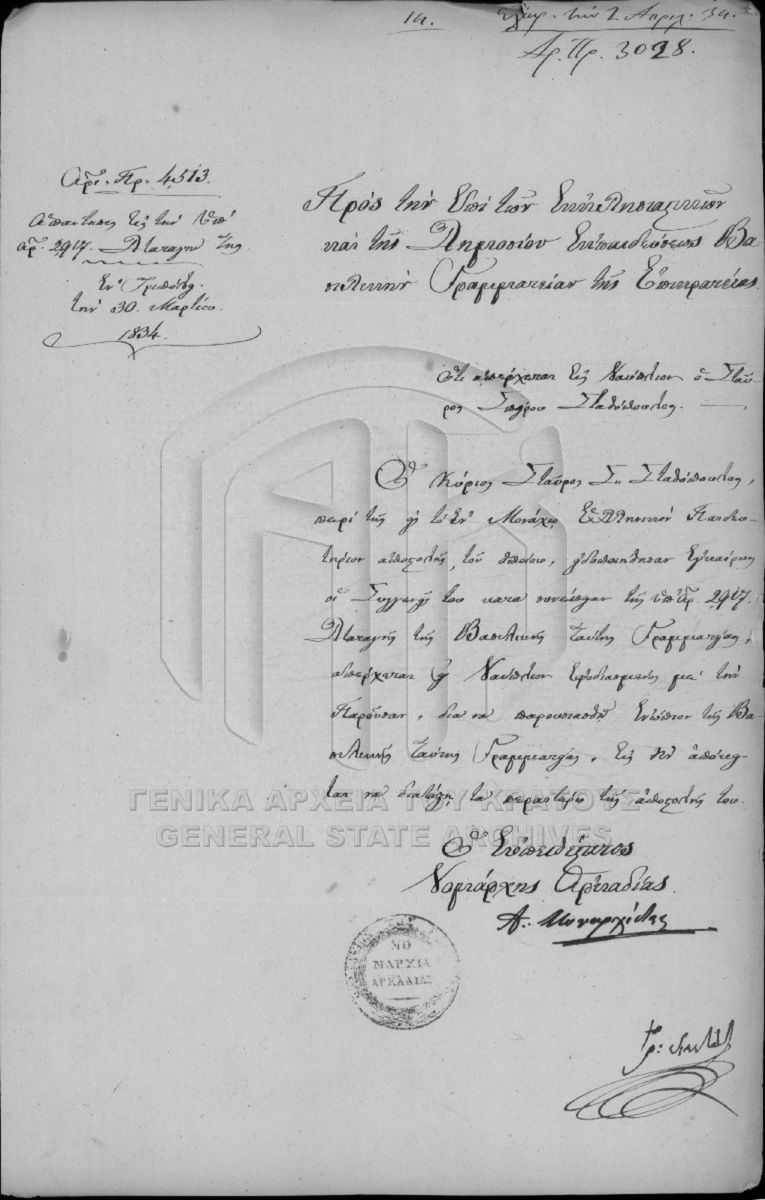 14.
τὴν 2 Απριλ. 34.
Αρ. Πρ. 3028.
Ἀρι. Πρ. 4513.
Ἀπάντησις εἰς τὴν ὑπ'
ἀρ. 2917. Διαταγὴν της
Ἐν Τριπόλ.
τὴν 30. Μαρτίου
1834.
Πρὸς τὴν Ἐπὶ τῶν Ἐκκλησιαστικῶν
καὶ τῆς Δημοσίου Ἐκπαιδεύσεως Βα-
σιλικὴν Γραμματείαν τῆς Ἐπικρατείας.
Ὅτι ἀπέρχεται εἰς Ναύπλιον ὁ Σταῦ-
ρος Σπύρου Σταθόπουλος.
Ὁ Κύριος Σταῦρος Σ. Σταθόπουλος,
περὶ τῆς εἰς τὸ ἐν Μονάχῳ Ἑλληνικὸν Παιδευ-
τήριον ἀποστολῆς, τοῦ ὁποίου, εἰδοποιήθησαν ἐγκαίρως
οἱ Συγγενεῖς του κατὰ συνέπειαν τῆς ὑπ' Ἀρ. 2917.
Διαταγῆς τῆς Βασιλικῆς ταύτης Γραμματείας,
ἀπέρχεται εἰς Ναύπλιον ἐφοδιασμένος μὲ τὴν
Παροῦσαν, διὰ νὰ παρουσιασθῇ ἐνώπιον τῆς Βα-
σιλικῆς ταύτης Γραμματείας, εἰς ἣν ἀπόκει-
ται νὰ διατάξῃ τὰ περαιτέρω τῆς ἀποστολῆς του.
Ὁ Εὐπειθέστατος
Νομάρχης Ἀρκαδίας
Α. Μοναρχίδης
ΝΟ
ΜΑΡΧΙΑ
ΑΡΚΑΔΙΑΣ
ΓΕΝΙΚΑ ΑΡΧΕΙΑ ΤΟΥ ΚΡΑΤΟΥΣ
GENERAL STATE ARCHIVES